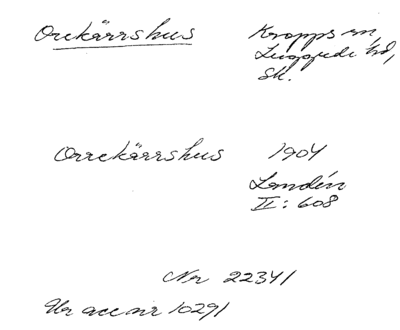 Orrekärrshus Kropps sn,
Luggude hd,
Sk.
Orrekärrshus 1904
Landén
II: 608
Nr 22341
Ur acc nr 10291